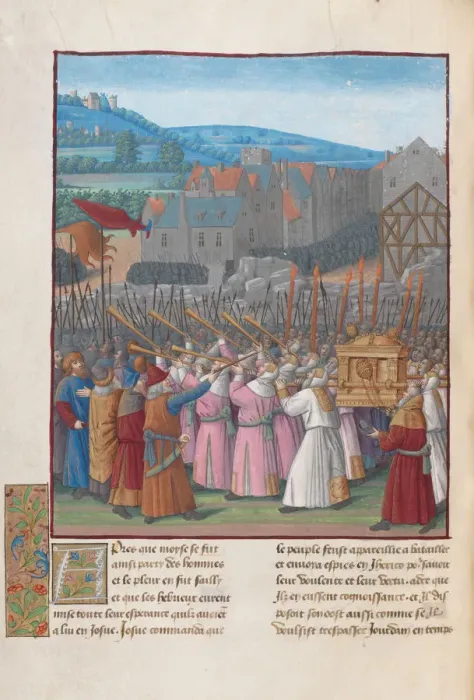 Apres que moyse se fut
ainsi party des hommes
et le pleur en fut failly
et que les hebrieux eurent
mise toute leur esperance quilz auoient
a lui en Josue. Josue commanda que
le peuple feust appareillie a batailler
et enuoya espies en Jherico pour sauoir
leur voulente et leur vertu. adce que
Ilz en eussent congnoissance. et Il dis
posoit son ost aussi comme se Il
voulsist trespasser Jourdain en temps